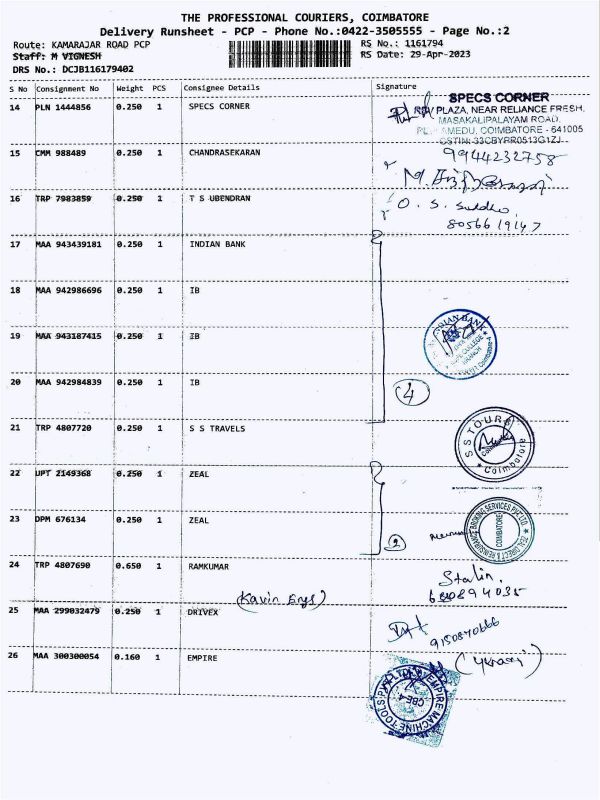 THE PROFESSIONAL COURIERS, COIMBATORE
Delivery Runsheet - PCP - Phone No.:0422-3505555 - Page No.:2
Route: KAMARAJAR ROAD PCP RS No.: 1161794
Staff: M VIGNESH RS Date: 29-Apr-2023
DRS No.: DCJB116179402
S No Consignment No Weight PCS Consignee Details Signature
14 PLN 1444856 0.250 1 SPECS CORNER
SPECS CORNER
PLAZA, NEAR RELIANCE FRESH,
MASAKALIPALAYAM ROAD,
COIMBATORE - 641005
GSTIN: 33CBYRR0513G1ZJ
15 CMM 988489 0.250 1 CHANDRASEKARAN
9944232758
16 TRP 7983859 0.250 1 T S UBENDRAN
O. S.
8056619147
17 MAA 943439181 0.250 1 INDIAN BANK
18 MAA 942986696 0.250 1 IB
19 MAA 943187415 0.250 1 IB
INDIAN BANK
COLLEGE
BRANCH
20 MAA 942984839 0.250 1 IB
4
21 TRP 4807720 0.250 1 S S TRAVELS
S S TOURS
Coimbatore
22 UPT 2149368 0.250 1 ZEAL
23 DPM 676134 0.250 1 ZEAL
2
ZEAL DIRECT & REINSURANCE BROKING SERVICES PVT LTD
COIMBATORE
24 TRP 4807690 0.650 1 RAMKUMAR
Stalin
(Kavin Engs)
25 MAA 299032479 0.250 1 DRIVEX
9150870666
26 MAA 300300054 0.160 1 EMPIRE
EMPIRE MACHINE TOOLS PVT LTD
CBE-4